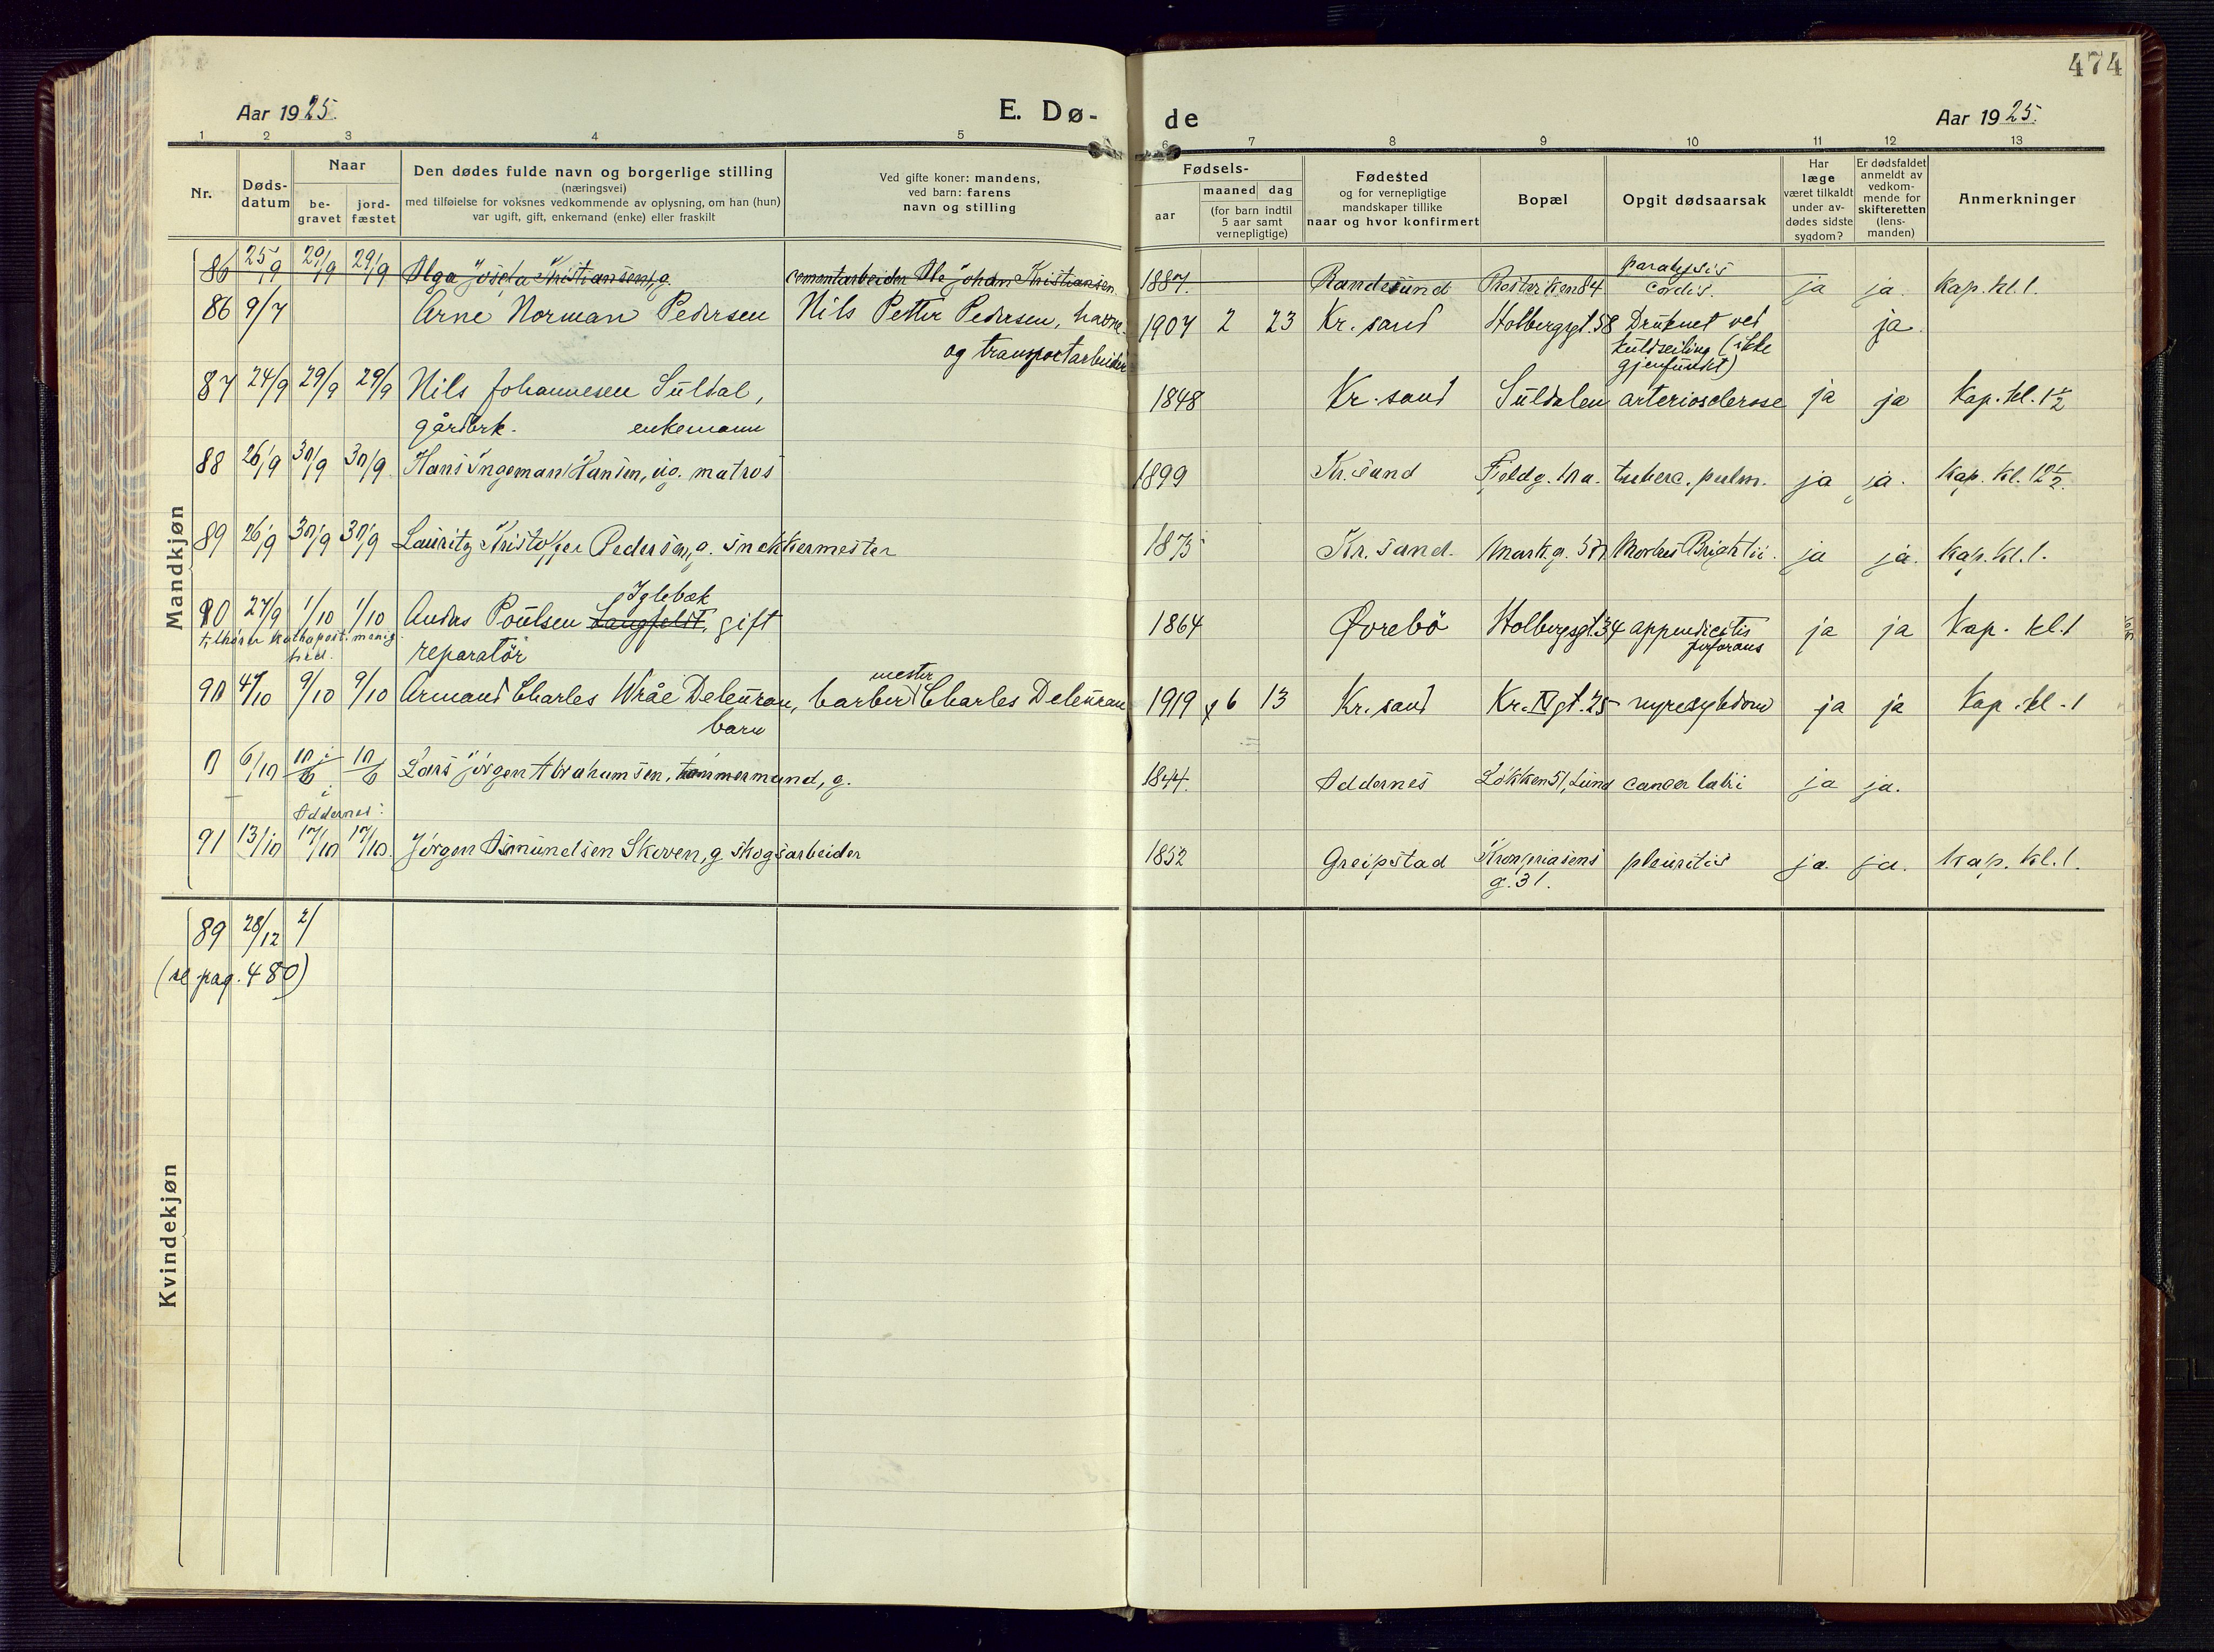 474
Aar 1925.
E. Dø-
de
Aar 1925.
1 2 3 4 5 6 7 8 9 10 11 12 13
Nr.
Døds-
datum
Naar
be-
gravet
jord-
fæstet
Den dødes fulde navn og borgerlige stilling
(næringsvei)
med tilføielse for voksnes vedkommende av oplysning, om han (hun)
var ugift, gift, enkemand (enke) eller fraskilt
Ved gifte koner: mandens,
ved barn: farens
navn og stilling
Fødsels-
aar
maaned dag
(for barn indtil
5 aar samt
vernepligtige)
Fødested
og for vernepligtige
mandskaper tillike
naar og hvor konfirmert
Bopæl
Opgit dødsaarsak
Har
læge
været tilkaldt
under av-
dødes sidste
sygdom?
Er dødsfaldet
anmeldt av
vedkom-
mende for
skifteretten
(lens-
manden)
Anmerkninger
Mandkjøn
86 25/9 29/9 29/9 Olga Josefa Kristiansen, g. cementarbeider Ole Johan Kristiansen 1887. Randesund 84 paralysis
cordis. ja ja. Kap. kl. 1.
86 9/7 Arne Norman Pedersen Nils Petter Pedersen, havne-
og transportarbeider 1907 2 23 Kr. sand Holbergsgt. 58 Druknet ved
kuldseiling (ikke
gjenfundet) ja.
87 24/9 29/9 29/9 Nils Johannesen Suldal,
gårdbrk. enkemann 1848 Kr. sand Suldalen arteriosclerose ja ja Kap. kl. 1 1/2
88 26/9 30/9 30/9 Hans Ingeman Hansen, ug. matros 1899 Kr. sand 10 a. tuberc. pulm. ja ja. Kap. kl. 12 1/2.
89 26/9 30/9 30/9 Lauritz Kristoffer Pedersen, g. snekkermester 1873 Kr. sand. Markg. Morbus Brightii. ja ja. Kap. kl. 1.
90 27/9 1/10 1/10 Anders Poulsen Langfeldt, Iglebæk gift
reparatør 1864 Øvrebö Holbergsgt. 34 appendicitis
perforans ja ja Kap. kl. 1
tilhørte
menig-
hed.
90 4/10 9/10 9/10 Armand Charles Wråe Deleuran,
barn barbermester Charles Deleuran 1919 6 13 Kr. sand Kr. IV gt. 25 nyresykdom ja ja Kap. kl. 1
0 6/10 10/10 10/10 Lars Jørgen Abrahamsen, tømmermand, g. 1844. Oddernes Løkken 51, Lund cancer labii ja ja.
i
Oddernes.
91 13/10 17/10 17/10. Jørgen Asmundsen Skoven, g. skogsarbeider 1852 Greipstad Kronprinsens
g. 31. pleuritis ja. ja. Kap. kl. 1.
Kvindekjøn
89 28/12 2/
(se pag. 480)